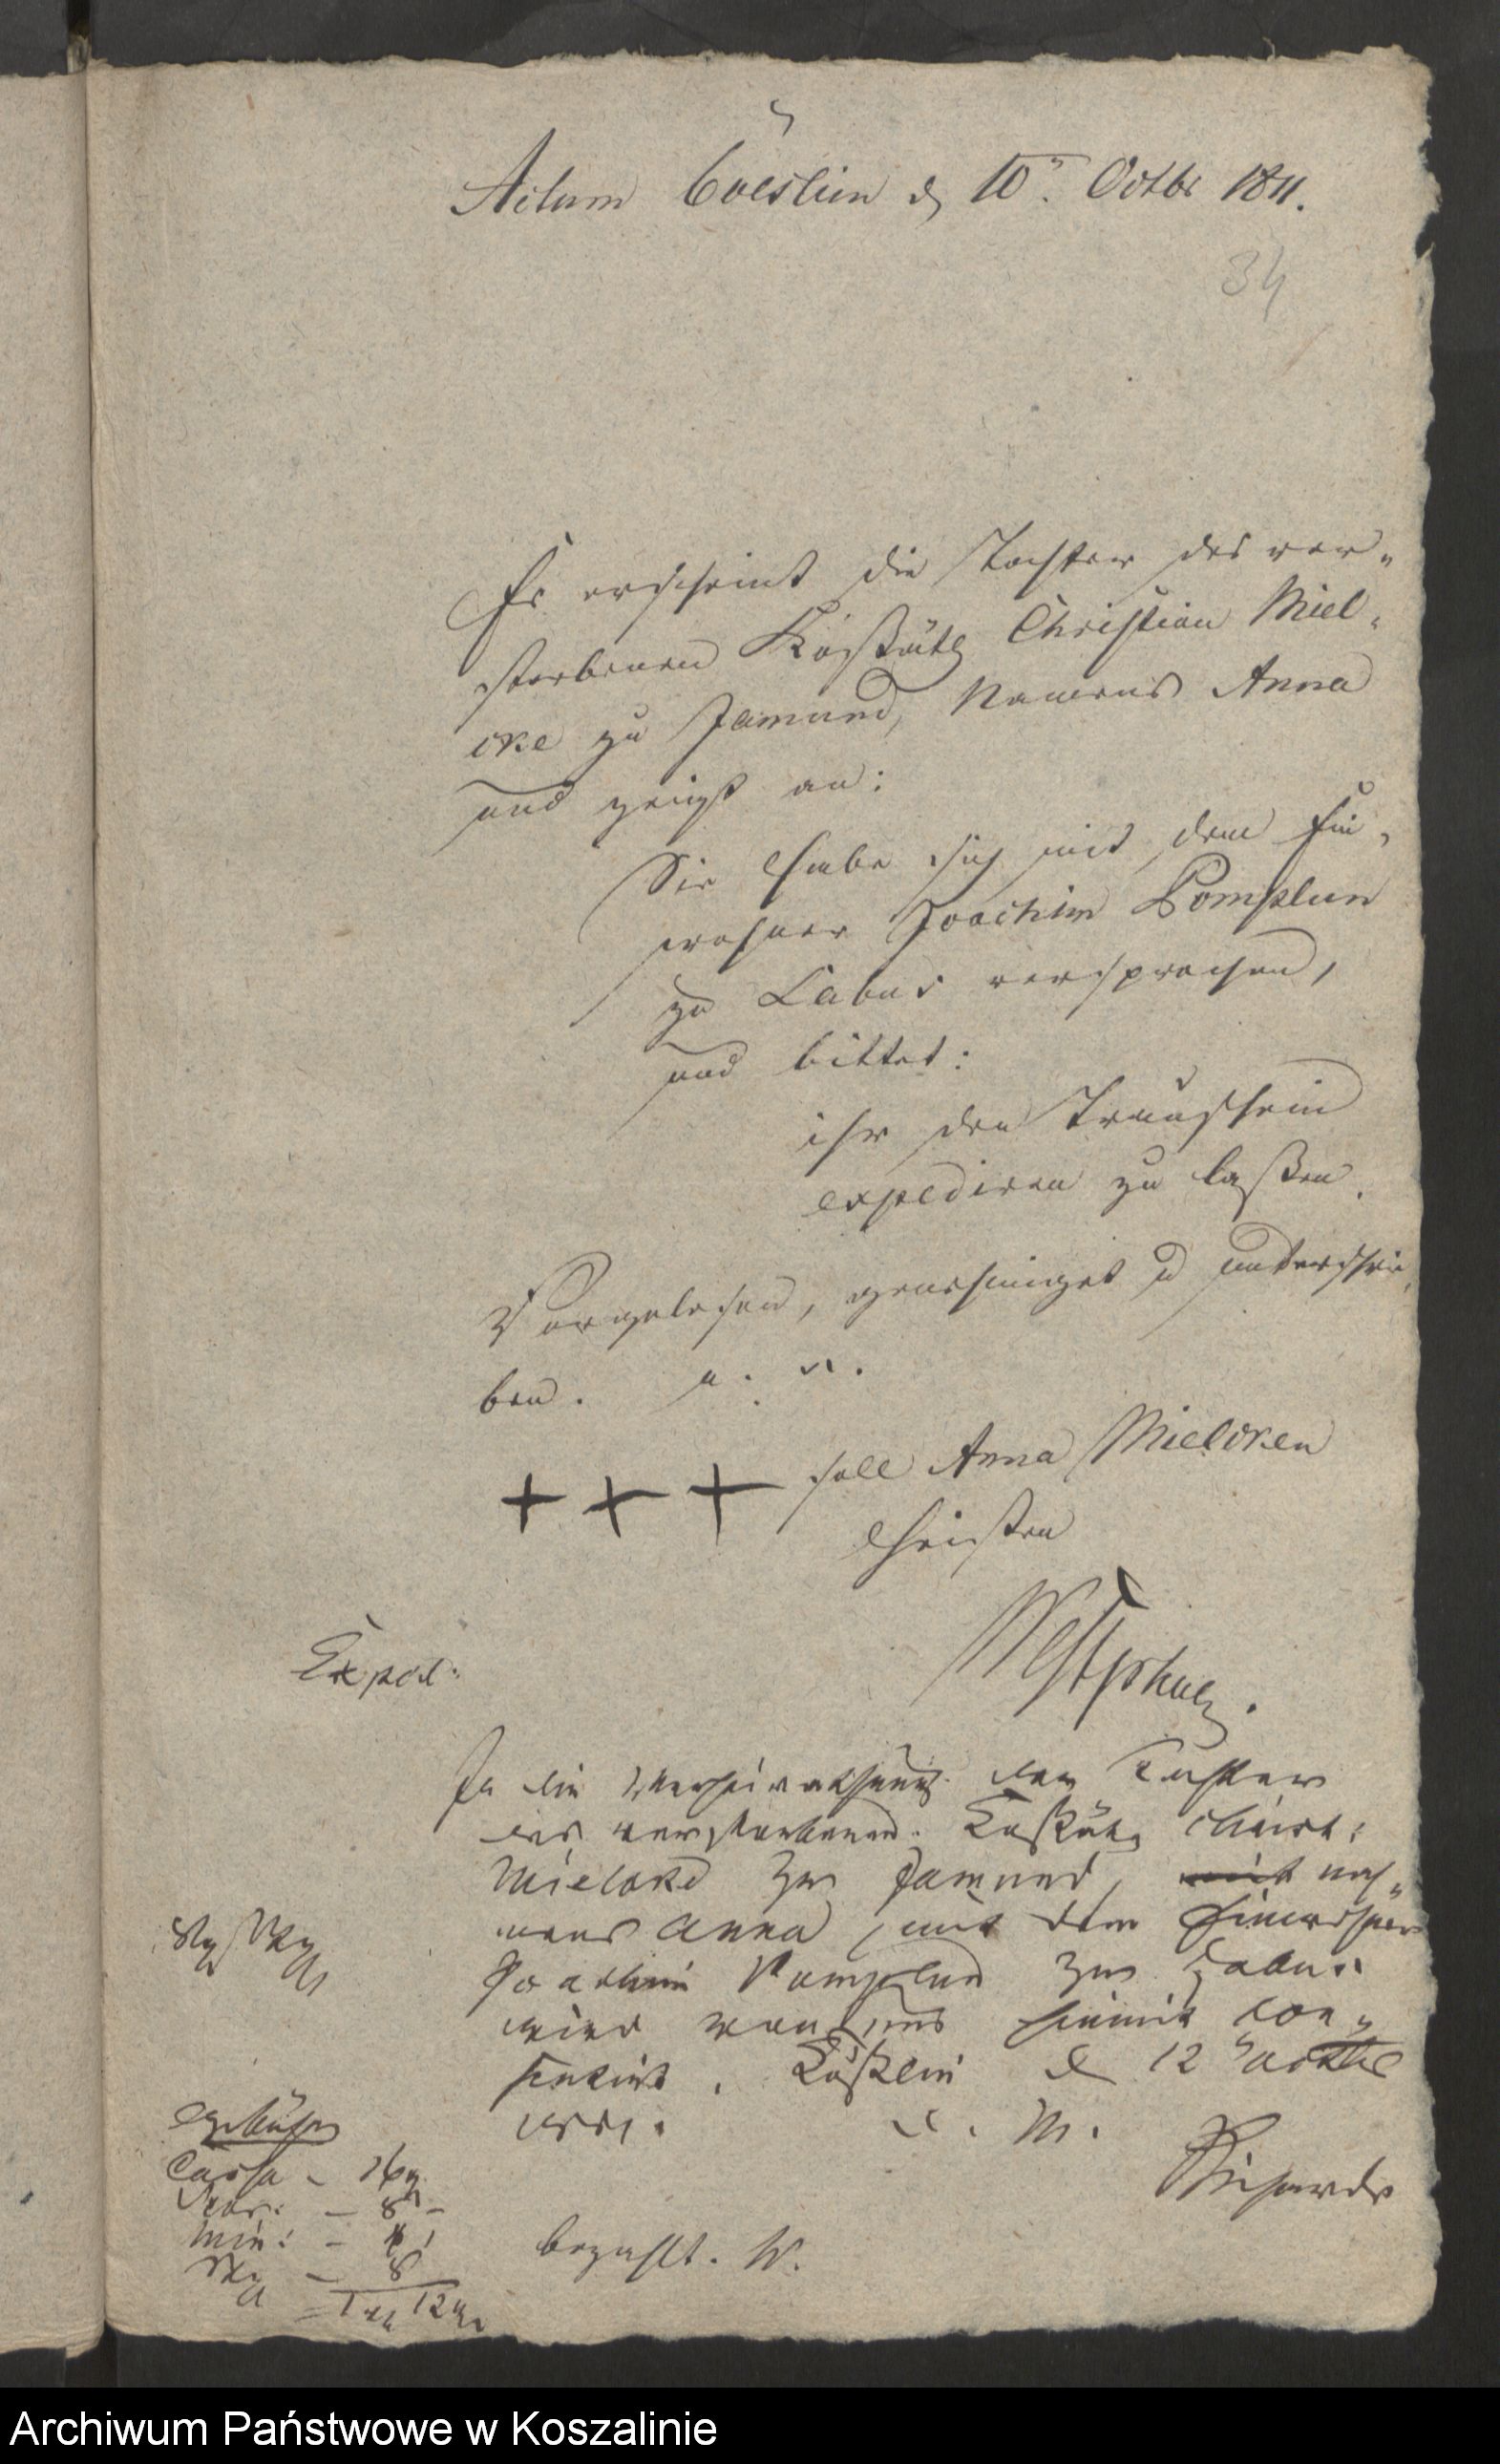 Actum Cöeslin d 10. Octbr 1811.
34
Es erscheint die Tochter des ver-
storbenen Koßäth Christian Miel-
cke zu Jamund, Namens Anna
und zeigt an:
Sie habe sich mit dem Ein-
wohner Joachim Pomplun
zu Labus versprochen,
und bittet:
ihr den Trauschein
expediren zu laßen.
Vorgelesen, genehmiget u unterschrie-
ben. a. u. s.
+++ soll Anna Mielcken
heißen
Westphal.
Exped:
In die Verheirathung der Tochter
des verstorbenen Koßäth Christ:
Mielcke zu Jamund, mit nah-
mens Anna, mit dem Einwohner
Joachim Pomplun zu Labus
wird von uns hiemit con-
sentirt. Cößlin d 12 Octbr
1811. M.
Gebühren
Cassa - 16 g
- 8 -
Min: -
- 8
1 12
bezahlt. W.
Archiwum Państwowe w Koszalinie